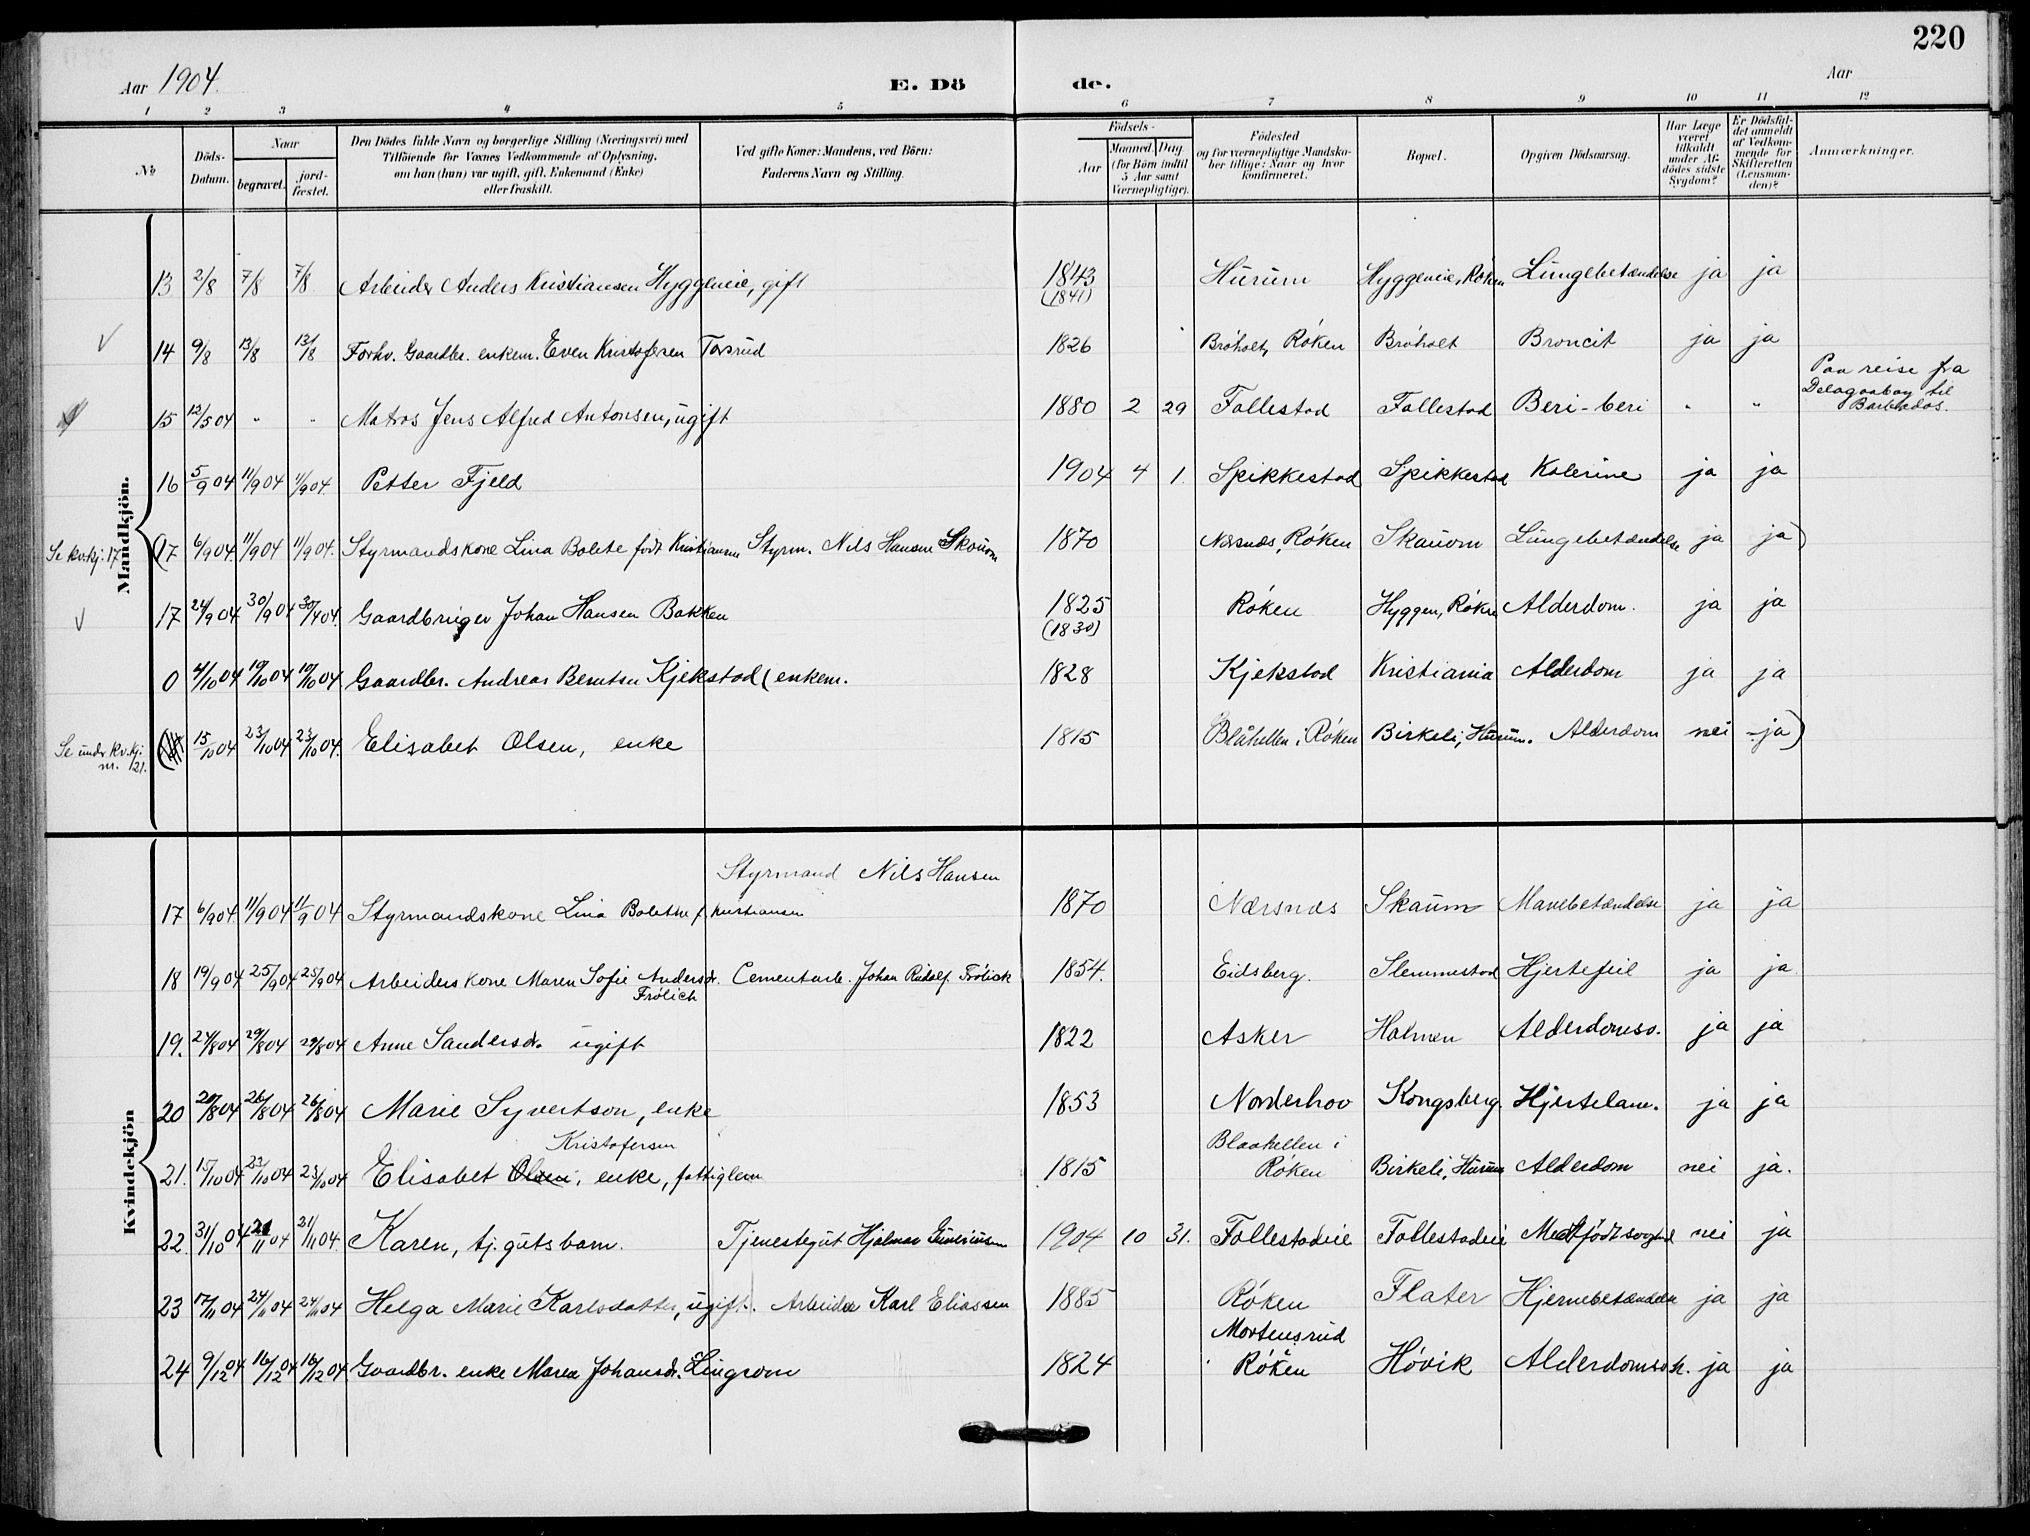 220
Aar 1904. E. Dö de. Aar
1 2 3 4 5 6 7 8 9 10 11 12
No Döds-Datum. Naar begravet. jord-fæstet. Den Dödes fulde Navn og borgerlige Stilling (Næringsvei) med Tilföiende for Voxnes Vedkommende af Oplysning, om han (hun) var ugift, gift, Enkemand (Enke) eller fraskilt. Ved gifte Koner: Mandens, ved Börn: Faderens Navn og Stilling. Födsels- Aar Maaned. Dag. (for Börn indtil 5 Aar samt Værnepligtige). Födested og for værnepligtige Mandskaber tillige: Naar og hvor konfirmeret. Bopæl. Opgiven Dödsaarsag. Har Læge været tilkaldt under Afdödes sidste Sygdom? Er Dödsfaldet anmeldt af Vedkommende for Skifteretten (Lensmanden)? Anmærkninger.
Mandkjön.
13 2/8 7/8 7/8 Arbeider Anders Kristiansen Hyggeneie, gift 1843 (1841) Hurum Hyggeneie, Röken Lungebetændelse ja ja
14 9/8 13/8 13/8 Forhv. Gaardbr. enkem. Even Kristofersen Torsrud 1826 Bröholt, Röken Bröholt Broncit ja ja
15 12/5 04 " " Matros Jens Alfred Antonsen, ugift 1880 2 29 Follestad Follestad Beri-beri " " Paa reise fra Delagoabay til Barbados.
16 5/9 04 11/9 04 11/9 04. Petter Fjeld 1904 4 1 Spikkestad Spikkestad Kolerine ja ja
Se kv.kj. 17 (17 6/9 04. 11/9 04 11/9 04. Styrmandskone Lina Bolete födt Kristiansen Styrm. Nils Hansen Skaum 1870 Nærsnæs, Röken Skaum Lungebetændelse ja ja)
17 24/9 04. 30/9 04 30/9 04. Gaardbruger Johan Hansen Bakken 1825 (1830) Röken Hyggen, Röken Alderdom. ja ja
0 4/10 04 10/10 04 10/10 04. Gaardbr. Andreas Berntsen Kjekstad (enkem. 1828 Kjekstad Kristiania Alderdom ja ja
Se under kv.kj. nr. 21. ( 15/10 04 23/10 04 23/10 04. Elisabet Olsen, enke 1815 Blåhellen i Röken Birkeli, Hurum. Alderdom nei - ja)
Kvindekjön
Styrmand Nils Hansen
17 6/9 04. 11/9 04 11/9 04 Styrmandskone Lina Bolethe f. Kristiansen 1870 Nærsnæs Skaum Mavebetændelse ja ja
18 19/9 04 25/9 04 25/9 04 Arbeiderskone Maren Sofie Andersdr. Frölich Cementarb. Johan Rudolf Frölick 1854. Eidsberg. Slemmestad Hjertefeil ja ja
19. 24/8 04 29/8 04 29/8 04 Anne Sandersdr. ugift 1822 Asker Holmen Alderdomss. ja ja
20 20/8 04 26/8 04 26/8 04 Marie Syvertson, enke 1853 Norderhov Kongsberg. Hjertelam. ja ja
Kristofersen
21. 15/10 04 23/10 04 23/10 04 Elisabet Olsen, enke, fattiglem 1815 Blaahellen i Röken Birkeli, Hurum Alderdom nei ja.
22. 31/10 04 21/11 04 21/11 04. Karen, tj.gutsbarn. Tjenestegut Hjalmar 1904 10 31. Follestadeie Follestadeie Medfödt svaghed nei ja
23 17/11 04 24/11 04 24/11 04 Helga Marie Karlsdatter, ugift. Arbeider Karl Eliassen 1885 Röken Flater Hjernebetændelse ja ja
24 9/12 04 16/12 04 16/12 04 Gaardbr. enke Maren Johansdr. Lingrom 1824 Mortensrud Röken Hövik Alderdomssvk. ja ja